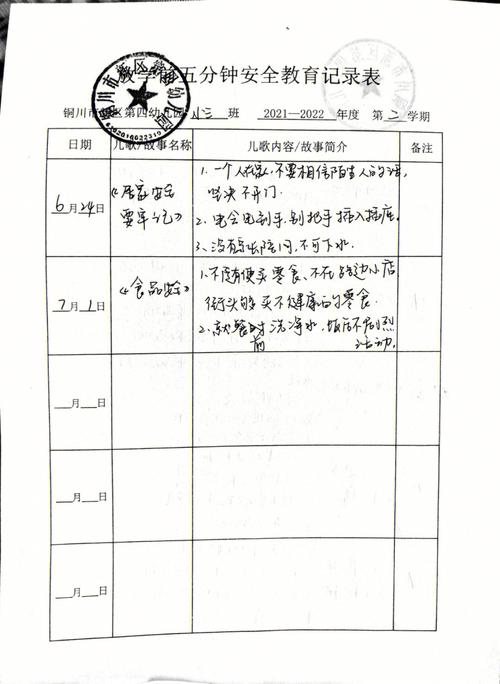 教学前五分钟安全教育记录表
铜川市新区第四幼儿园 小三 班 2021—2022 年度 第 二 学期
日期 儿歌/故事名称 儿歌内容/故事简介 备注
6月24日 《居家安全要牢记》
1. 一个人在家,不要相信陌生人的话,
坚决不开门.
2. 电会电到手,别把手插入插座.
3、没有家长陪同,不可下水.
7月1日 《食品安全》
1. 不随便买零食、不在路边小店
街头 买不健康的零食.
2. 就餐前 洗净 ,饭后不剧烈
活动.
___月___日
___月___日
___月___日